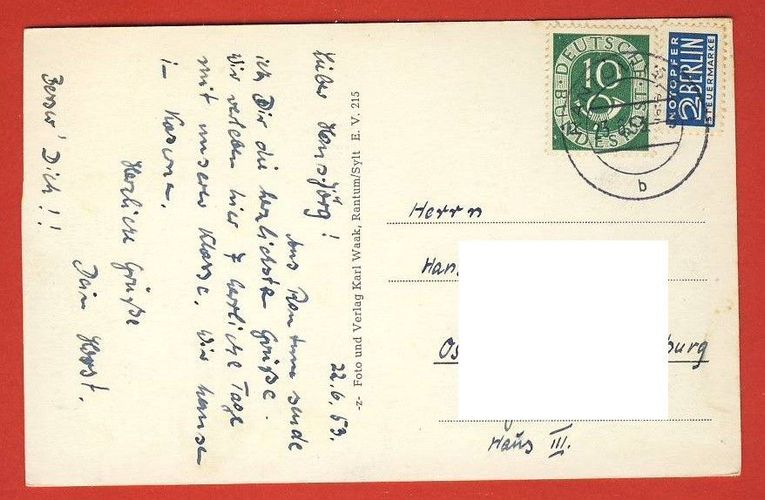 22.6.53.
Lieber Hansjörg!
Aus Rantum sende
ich Dir die herzlichsten Grüße.
Wir verleben hier 7 herrliche Tage
mit unserer Klasse. Wir hausen
in Kaserne.
Herzliche Grüße
Dein Horst.
Besser' Dich!!
-z- Foto und Verlag Karl Waak, Rantum/Sylt E. V. 215
DEUTSCHE
BUNDESPOST
10
NOTOPFER
2 BERLIN
STEUERMARKE
b
Herrn
Han
Os burg
Haus III.